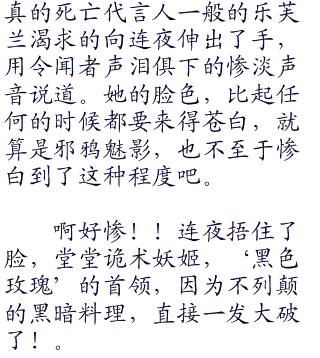 真的死亡代言人一般的乐芙
兰渴求的向连夜伸出了手，
用令闻者声泪俱下的惨淡声
音说道。她的脸色，比起任
何的时候都要来得苍白，就
算是邪鸦魅影，也不至于惨
白到了这种程度吧。
啊好惨！！连夜捂住了
脸，堂堂诡术妖姬，‘黑色
玫瑰’的首领，因为不列颠
的黑暗料理，直接一发大破
了！。